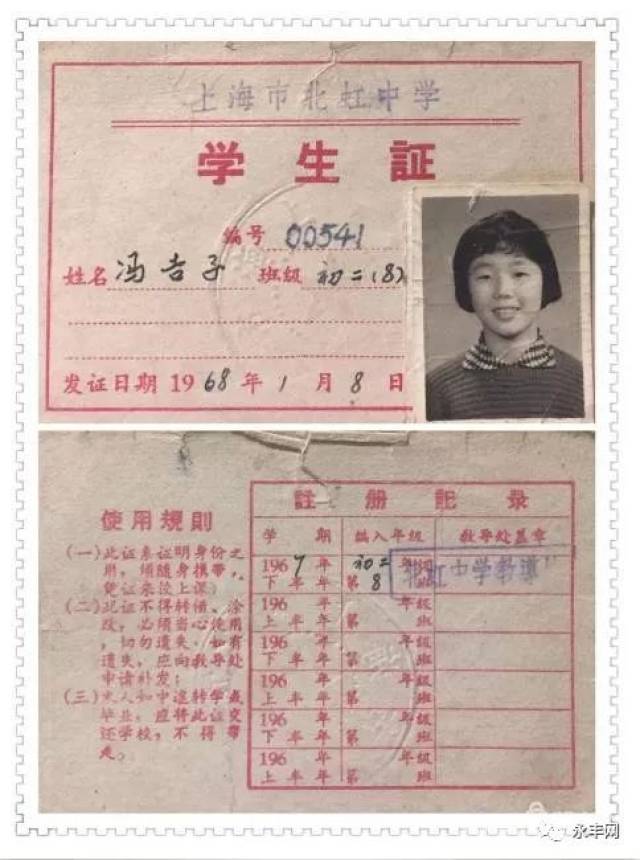 上海市北虹中学
学生証
编号 00541
姓名 冯吉子 班级 初二(8)
发证日期 1968年1月8日
使用规則
(一)此证系证明身份之
用,须随身携带,
凭证来校上课;
(二)此证不得转借、涂
改,必须当心使用
,切勿遗失。如有
遗失,应向教导处
申请补发;
(三)本人如中途转学或
毕业,应将此证交
还学校,不得带
走。
註册記录
学期 编入年级 教导处盖章
1967年 初二年级
下半年 第8班
北虹中学教導
196 年 年级
上半年 第 班
196 年 年级
下半年 第 班
196 年 年级
上半年 第 班
196 年 年级
下半年 第 班
196 年 年级
上半年 第 班
永丰网